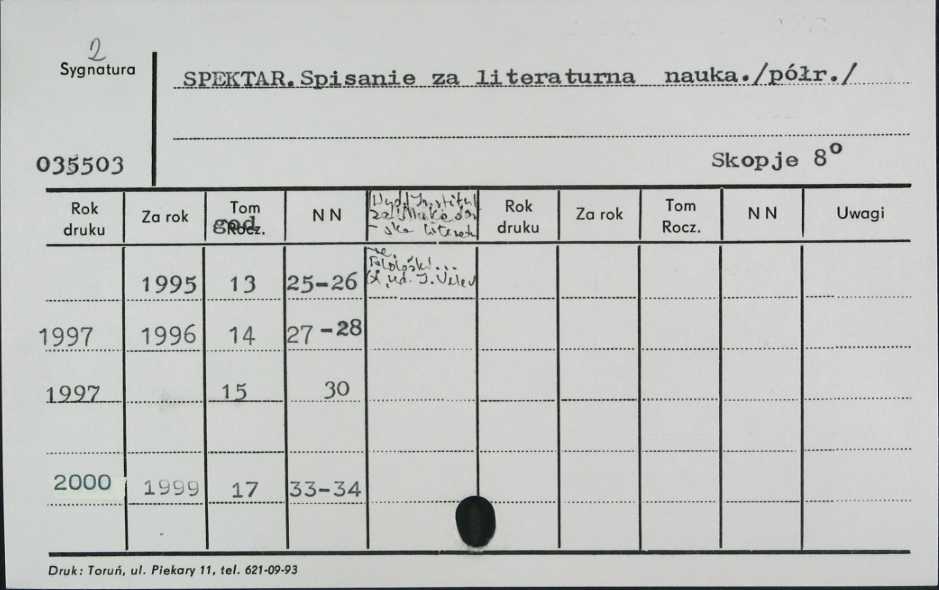 2
Sygnatura
SPEKTAR. Spisanie za literaturna nauka./półr./
035503
Skopje 8°
Rok druku Za rok Tom Rocz. god. N N Wyd. Institut za Make don - ska literat. Rok druku Za rok Tom Rocz. N N Uwagi
1995 13 25-26 Gł. ud. I. Velev
1997 1996 14 27-28
1997 15 30
2000 1999 17 33-34
Druk: Toruń, ul. Piekary 11, tel. 621-09-93